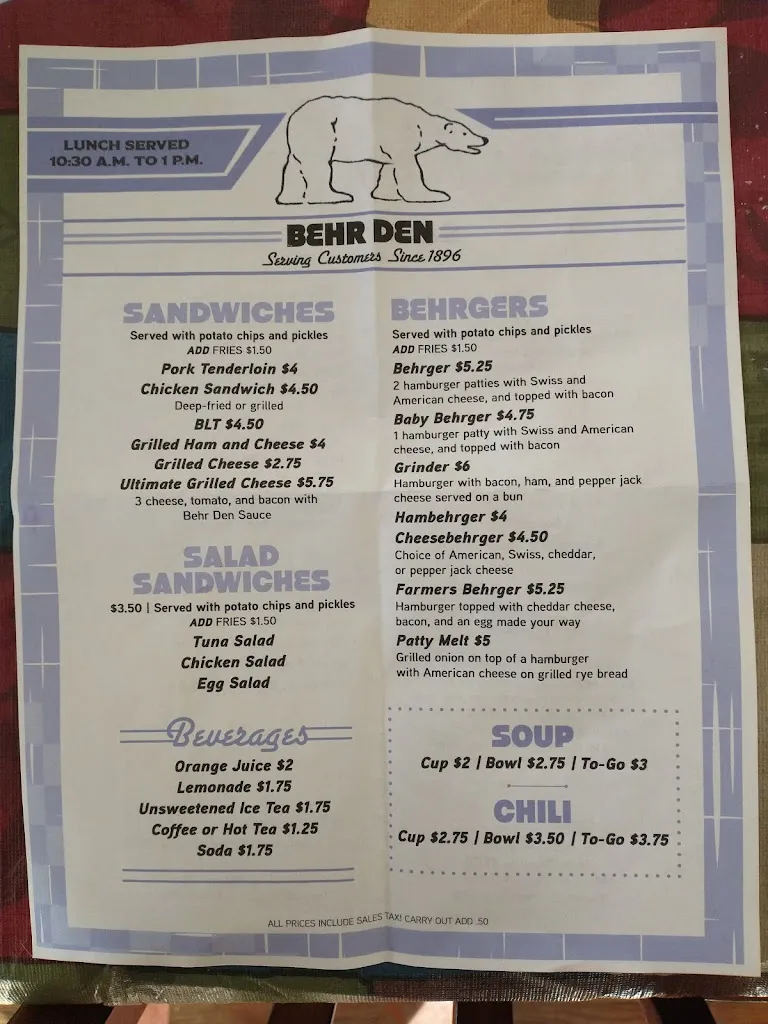 LUNCH SERVED
10:30 A.M. TO 1 P.M.
BEHR DEN
Serving Customers Since 1896
SANDWICHES
Served with potato chips and pickles
ADD FRIES $1.50
Pork Tenderloin $4
Chicken Sandwich $4.50
Deep-fried or grilled
BLT $4.50
Grilled Ham and Cheese $4
Grilled Cheese $2.75
Ultimate Grilled Cheese $5.75
3 cheese, tomato, and bacon with
Behr Den Sauce
SALAD
SANDWICHES
$3.50 | Served with potato chips and pickles
ADD FRIES $1.50
Tuna Salad
Chicken Salad
Egg Salad
Beverages
Orange Juice $2
Lemonade $1.75
Unsweetened Ice Tea $1.75
Coffee or Hot Tea $1.25
Soda $1.75
BEHRGERS
Served with potato chips and pickles
ADD FRIES $1.50
Behrger $5.25
2 hamburger patties with Swiss and
American cheese, and topped with bacon
Baby Behrger $4.75
1 hamburger patty with Swiss and American
cheese, and topped with bacon
Grinder $6
Hamburger with bacon, ham, and pepper jack
cheese served on a bun
Hambehrger $4
Cheesebehrger $4.50
Choice of American, Swiss, cheddar,
or pepper jack cheese
Farmers Behrger $5.25
Hamburger topped with cheddar cheese,
bacon, and an egg made your way
Patty Melt $5
Grilled onion on top of a hamburger
with American cheese on grilled rye bread
SOUP
Cup $2 | Bowl $2.75 | To-Go $3
CHILI
Cup $2.75 | Bowl $3.50 | To-Go $3.75
ALL PRICES INCLUDE SALES TAX! CARRY OUT ADD .50